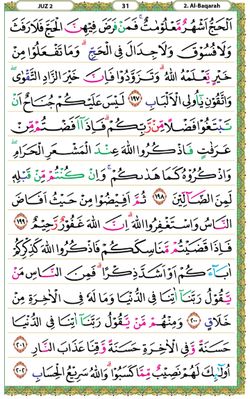 JUZ 2 31 2. Al-Baqarah
اَلْحَجُّ اَشْهُرٌ مَّعْلُوْمٰتٌ ۚ فَمَنْ فَرَضَ فِيْهِنَّ الْحَجَّ فَلَا رَفَثَ
وَلَا فُسُوْقَ ۙ وَلَا جِدَالَ فِى الْحَجِّ ؕ وَمَا تَفْعَلُوْا مِنْ
خَيْرٍ يَّعْلَمْهُ اللّٰهُ ؕ وَتَزَوَّدُوْا فَاِنَّ خَيْرَ الزَّادِ التَّقْوٰى
وَاتَّقُوْنِ يٰٓاُولِى الْاَلْبَابِ ﴿۱۹۷﴾ لَيْسَ عَلَيْكُمْ جُنَاحٌ اَنْ
تَبْتَغُوْا فَضْلًا مِّنْ رَّبِّكُمْ ؕ فَاِذَآ اَفَضْتُمْ مِّنْ
عَرَفٰتٍ فَاذْكُرُوا اللّٰهَ عِنْدَ الْمَشْعَرِ الْحَرَامِ
وَاذْكُرُوْهُ كَمَا هَدٰٮكُمْ ۚ وَاِنْ كُنْتُمْ مِّنْ قَبْلِهٖ
لَمِنَ الضَّآلِّيْنَ ﴿۱۹۸﴾ ثُمَّ اَفِيْضُوْا مِنْ حَيْثُ اَفَاضَ
النَّاسُ وَاسْتَغْفِرُوا اللّٰهَ ؕ اِنَّ اللّٰهَ غَفُوْرٌ رَّحِيْمٌ ﴿۱۹۹﴾
فَاِذَا قَضَيْتُمْ مَّنَاسِكَكُمْ فَاذْكُرُوا اللّٰهَ كَذِكْرِكُمْ
اٰبَآءَكُمْ اَوْ اَشَدَّ ذِكْرًا ؕ فَمِنَ النَّاسِ مَنْ
يَّقُوْلُ رَبَّنَآ اٰتِنَا فِى الدُّنْيَا وَمَا لَهٗ فِى الْاٰخِرَةِ مِنْ
خَلَاقٍ ﴿۲۰۰﴾ وَمِنْهُمْ مَّنْ يَّقُوْلُ رَبَّنَآ اٰتِنَا فِى الدُّنْيَا
حَسَنَةً وَّفِى الْاٰخِرَةِ حَسَنَةً وَّقِنَا عَذَابَ النَّارِ ﴿۲۰۱﴾
اُولٰٓئِكَ لَهُمْ نَصِيْبٌ مِّمَّا كَسَبُوْا ؕ وَاللّٰهُ سَرِيْعُ الْحِسَابِ ﴿۲۰۲﴾